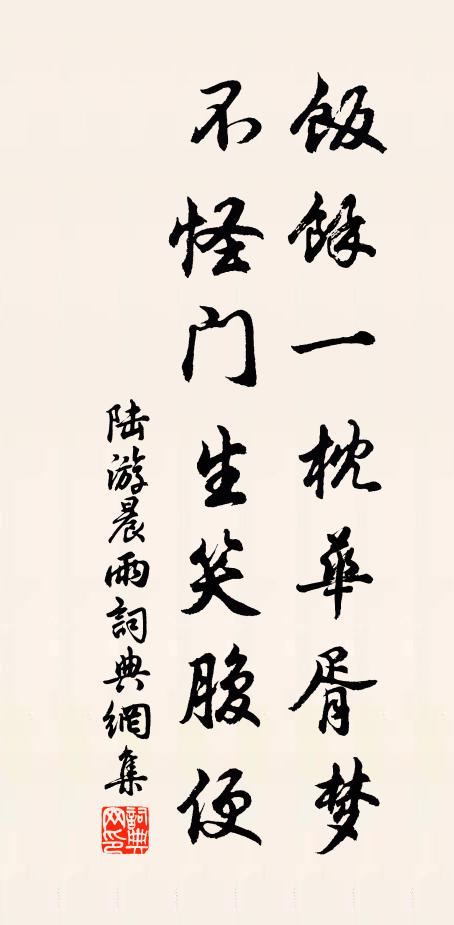 飯餘一枕華胥梦
不怪门生笑腹便
陆游晨雨詞典網集
詞典网印